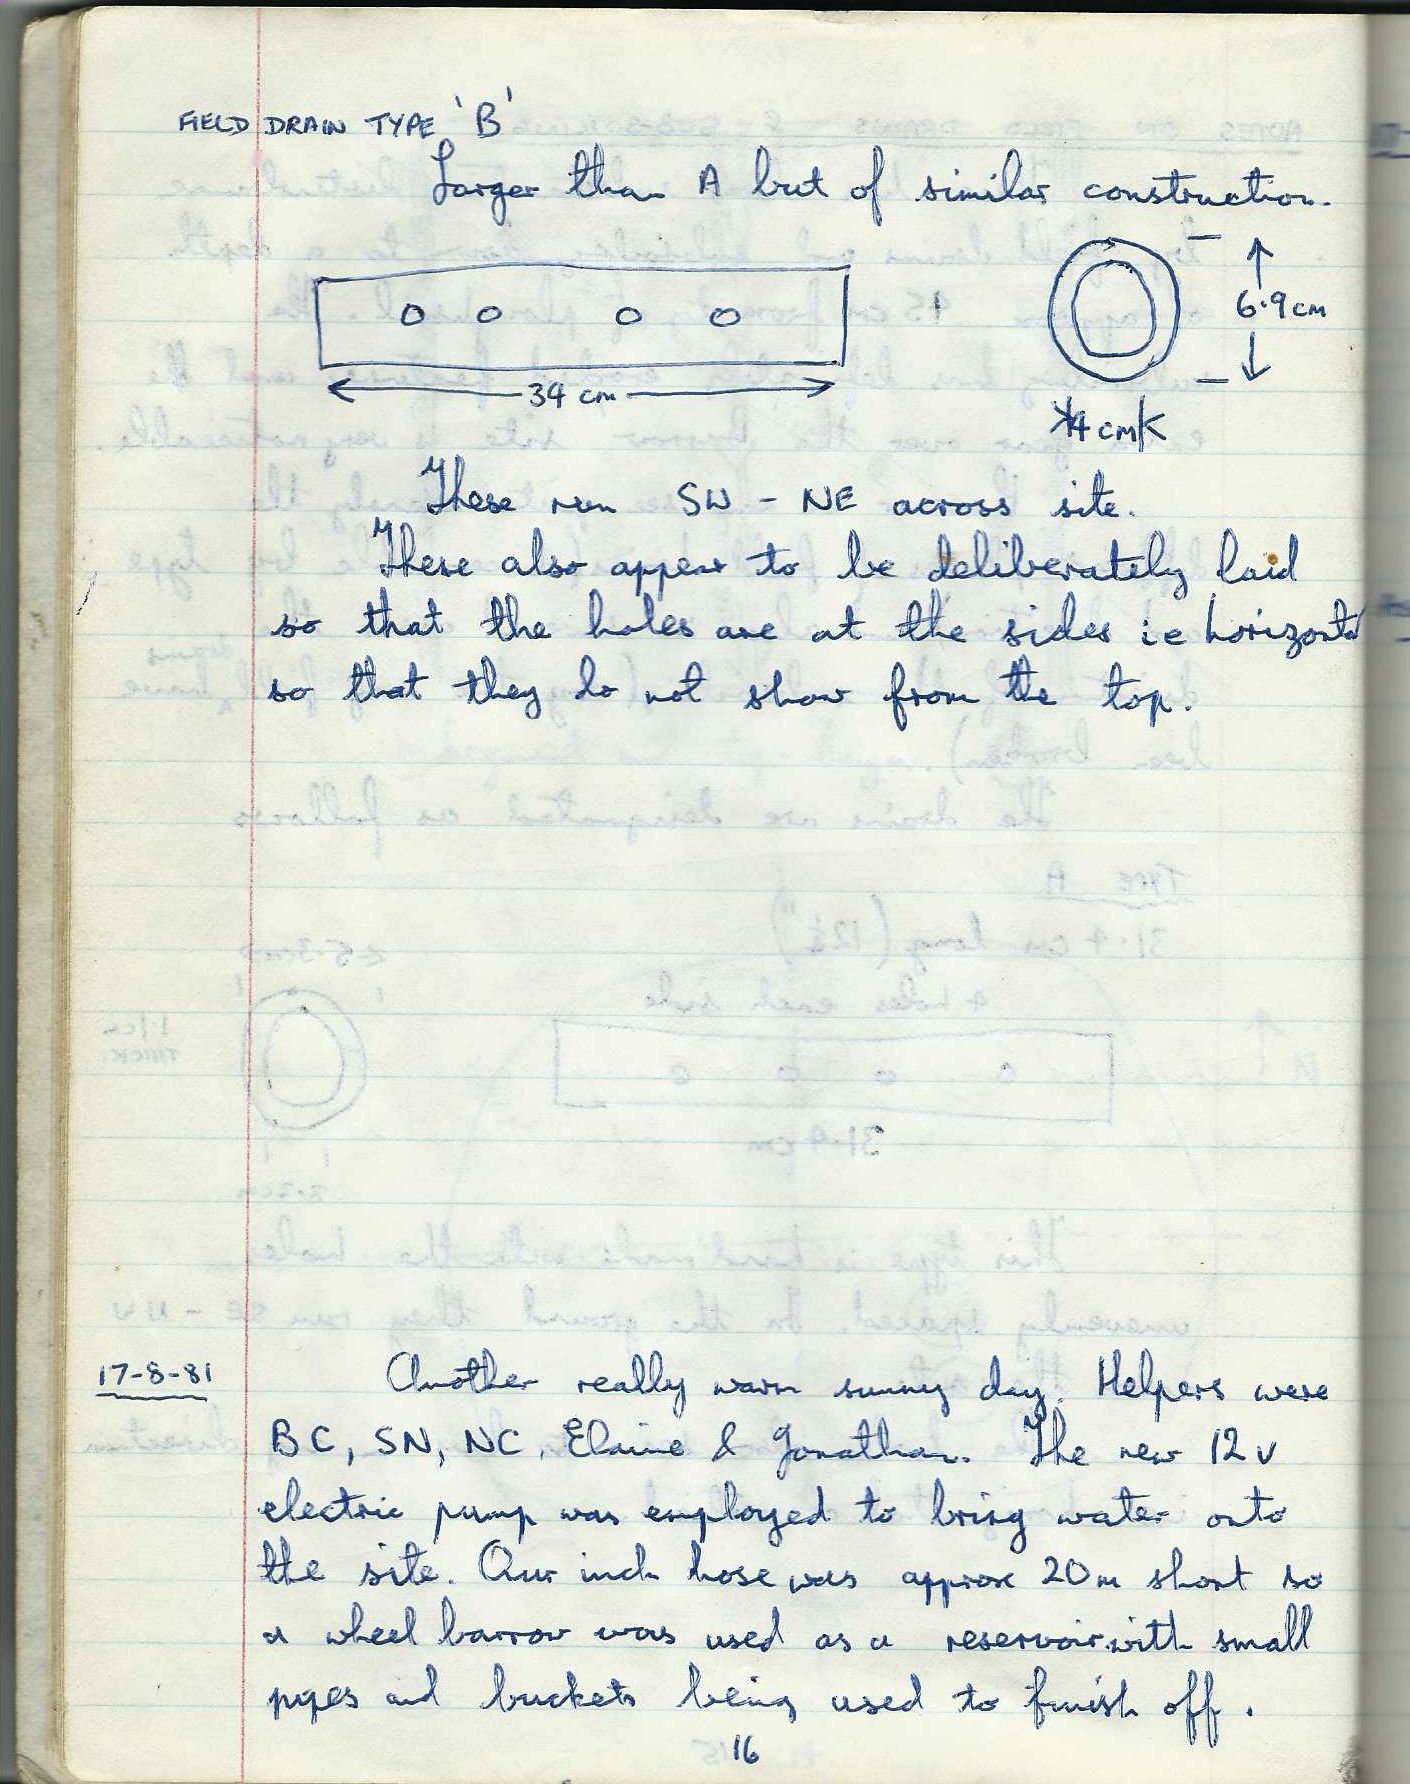 FIELD DRAIN TYPE 'B'
Larger than A but of similar construction.
6.9 cm
34 cm
4 cm
These run SW - NE across site.
These also appear to be deliberately laid
so that the holes are at the sides ie horizontal
so that they do not show from the top.
17-8-81
Another really warm sunny day. Helpers were
BC, SN, NC, Elaine & Jonathan. The new 12v
electric pump was employed to bring water onto
the site. Our inch hose was approx 20m short so
a wheel barrow was used as a reservoir with small
pipes and buckets being used to finish off.
16